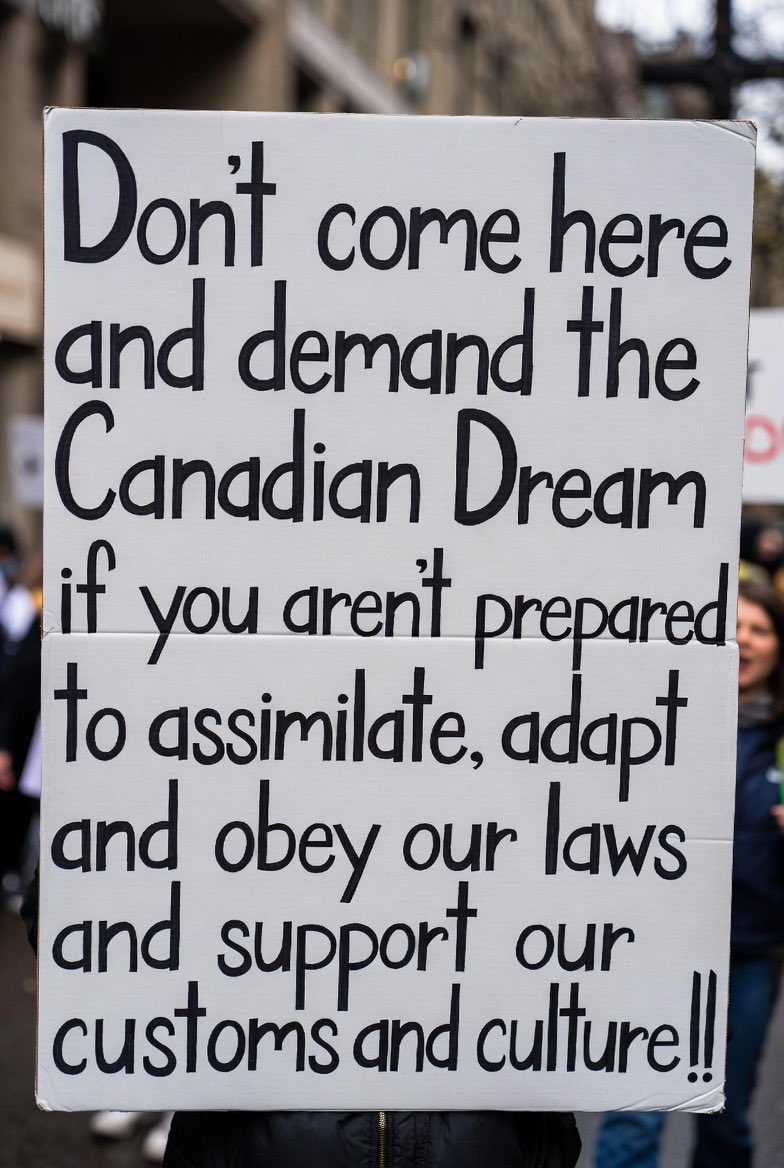 Don't come here
and demand the
Canadian Dream
if you aren't prepared
to assimilate, adapt
and obey our laws
and support our
customs and culture!!